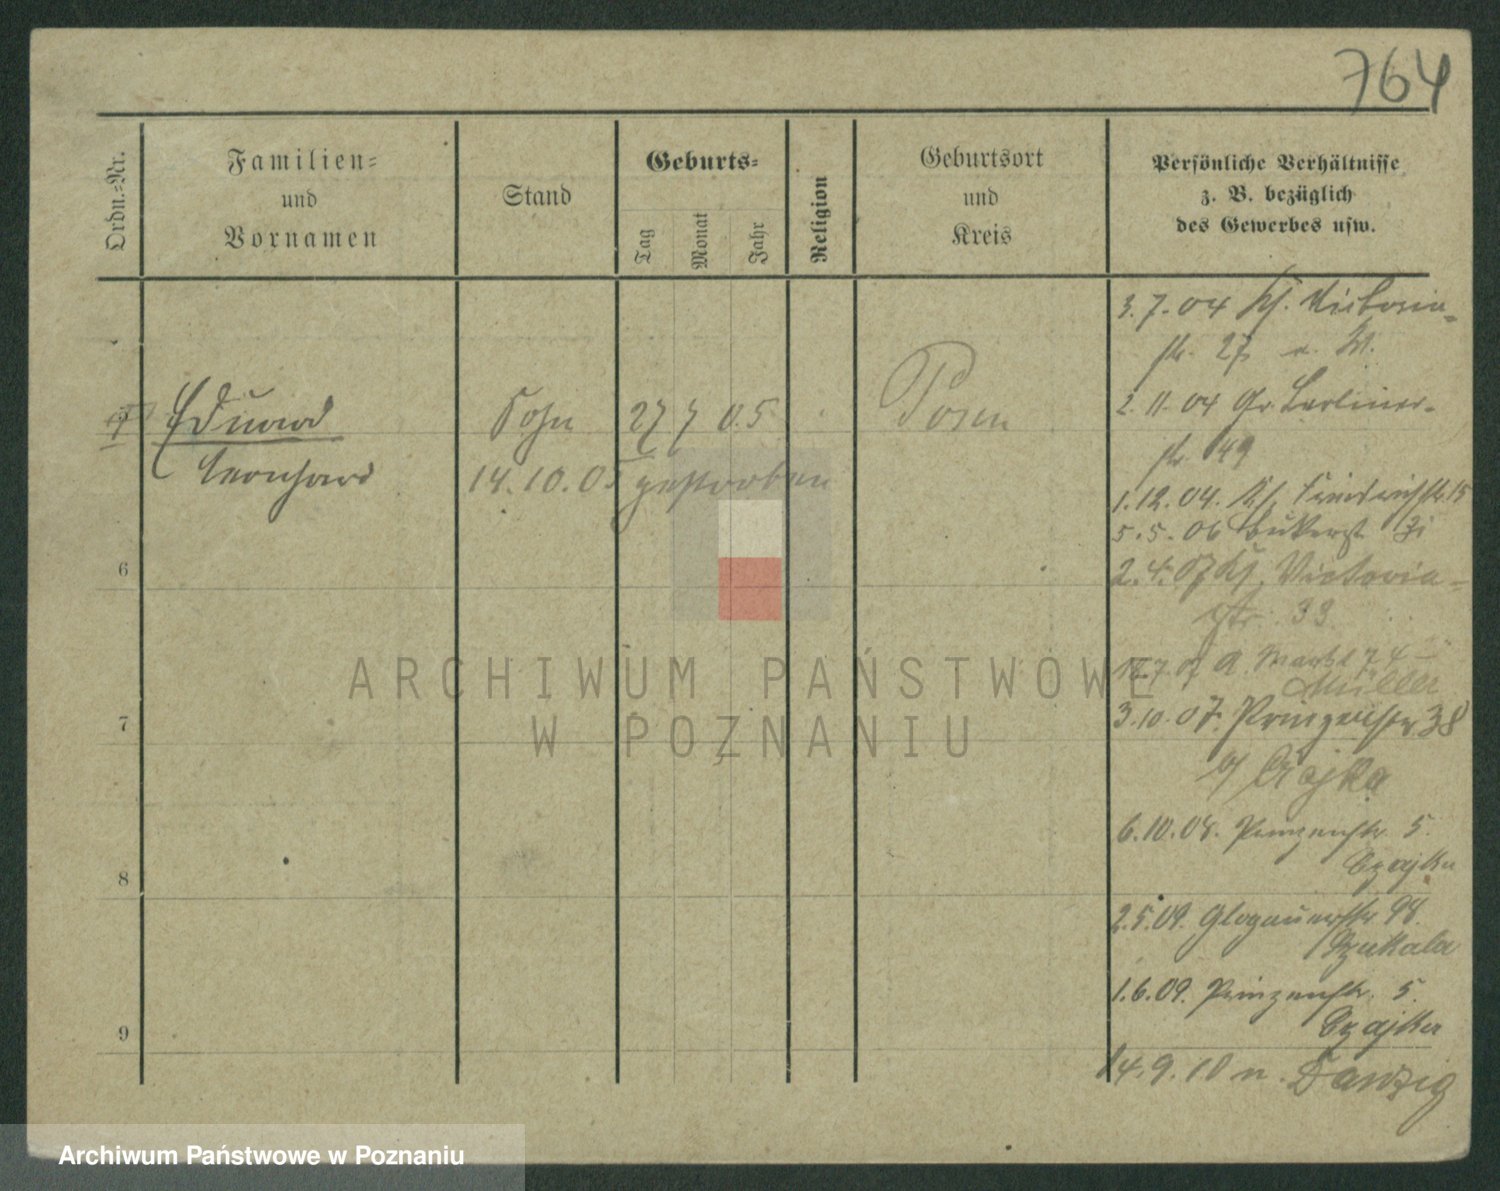 764
Ordn.=Nr.
Familien=
und
Vornamen
Stand
Geburts=
Tag
Monat
Jahr
Religion
Geburtsort
und
Kreis
Persönliche Verhältnisse
z. B. bezüglich
des Gewerbes usw.
3.7.04 Kl. Victoria-
str. 27
2.11.04 Gr. Berliner-
str. 49
1.12.04. Kl. Friedrichstr. 15
5.5.06 Bukerst
2.4.07 Kl. Victoria=
str. 33.
7.07 A. Markt 74
Müller
3.10.07. Prinzenstr 38
b/ Czajka
6.10.08. Prinzenstr. 5.
Czajka
2.5.09. Glogauerstr 98.
Szukala
1.6.09. Prinzenstr. 5.
Czajka
14.9.10 n. Danzig
Eduard Sohn 27 7 05 Posen
Leonhard 14.10.05 gestorben
6
7
8
9
ARCHIWUM PAŃSTWOWE
W POZNANIU
Archiwum Państwowe w Poznaniu